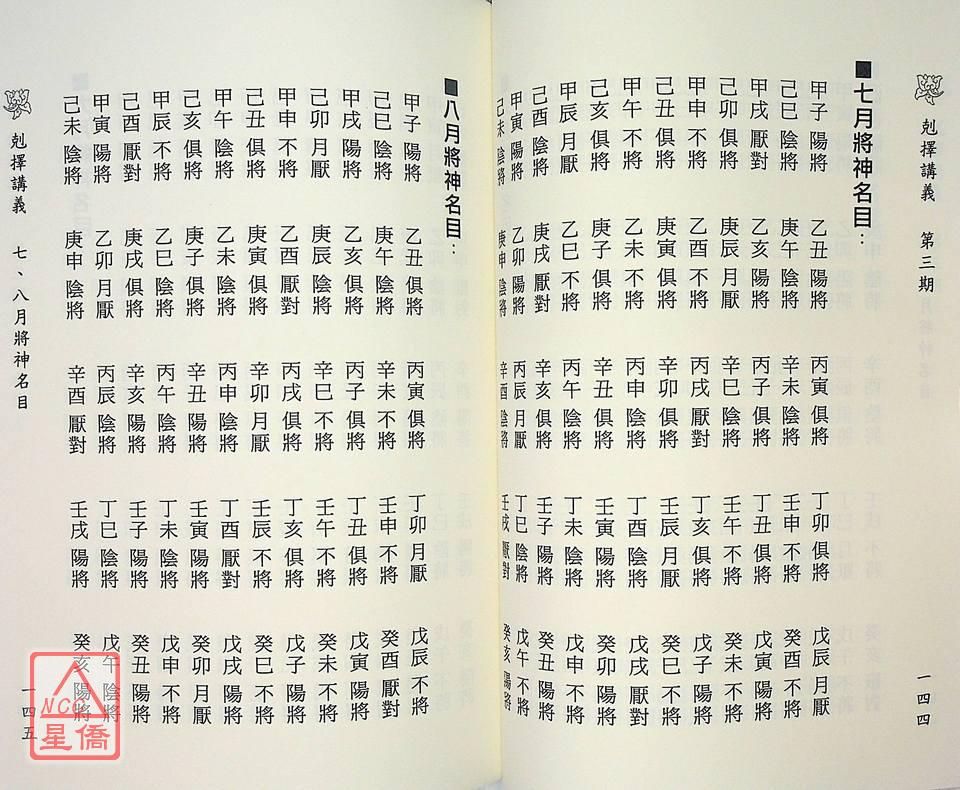 剋擇講義 第三期 一四四
■七月將神名目：
甲子陽將 乙丑陽將 丙寅俱將 丁卯俱將 戊辰月厭
己巳陰將 庚午陰將 辛未陰將 壬申不將 癸酉不將
甲戌厭對 乙亥陽將 丙子俱將 丁丑俱將 戊寅陽將
己卯俱將 庚辰月厭 辛巳陰將 壬午不將 癸未不將
甲申不將 乙酉不將 丙戌厭對 丁亥俱將 戊子陽將
己丑俱將 庚寅俱將 辛卯俱將 壬辰月厭 癸巳不將
甲午不將 乙未不將 丙申陰將 丁酉陰將 戊戌厭對
己亥俱將 庚子俱將 辛丑俱將 壬寅陽將 癸卯陽將
甲辰月厭 乙巳不將 丙午陰將 丁未陰將 戊申不將
己酉陰將 庚戌厭對 辛亥俱將 壬子陽將 癸丑陽將
甲寅陽將 乙卯陽將 丙辰月厭 丁巳陰將 戊午不將
己未陰將 庚申陰將 辛酉陰將 壬戌厭對 癸亥陽將
■八月將神名目：
甲子陽將 乙丑俱將 丙寅俱將 丁卯月厭 戊辰不將
己巳陰將 庚午陰將 辛未不將 壬申不將 癸酉厭對
甲戌陽將 乙亥俱將 丙子俱將 丁丑俱將 戊寅陽將
己卯月厭 庚辰陰將 辛巳不將 壬午不將 癸未不將
甲申不將 乙酉厭對 丙戌俱將 丁亥俱將 戊子陽將
己丑俱將 庚寅俱將 辛卯月厭 壬辰不將 癸巳不將
甲午不將 乙未陰將 丙申陰將 丁酉厭對 戊戌陽將
己亥俱將 庚子俱將 辛丑陽將 壬寅陽將 癸卯月厭
甲辰不將 乙巳陰將 丙午陰將 丁未陰將 戊申不將
己酉厭對 庚戌俱將 辛亥陽將 壬子陽將 癸丑陽將
甲寅陽將 乙卯月厭 丙辰陰將 丁巳陰將 戊午陰將
己未陰將 庚申陰將 辛酉厭對 壬戌陽將 癸亥陽將
剋擇講義 七、八月將神名目 一四五
NCC
星僑